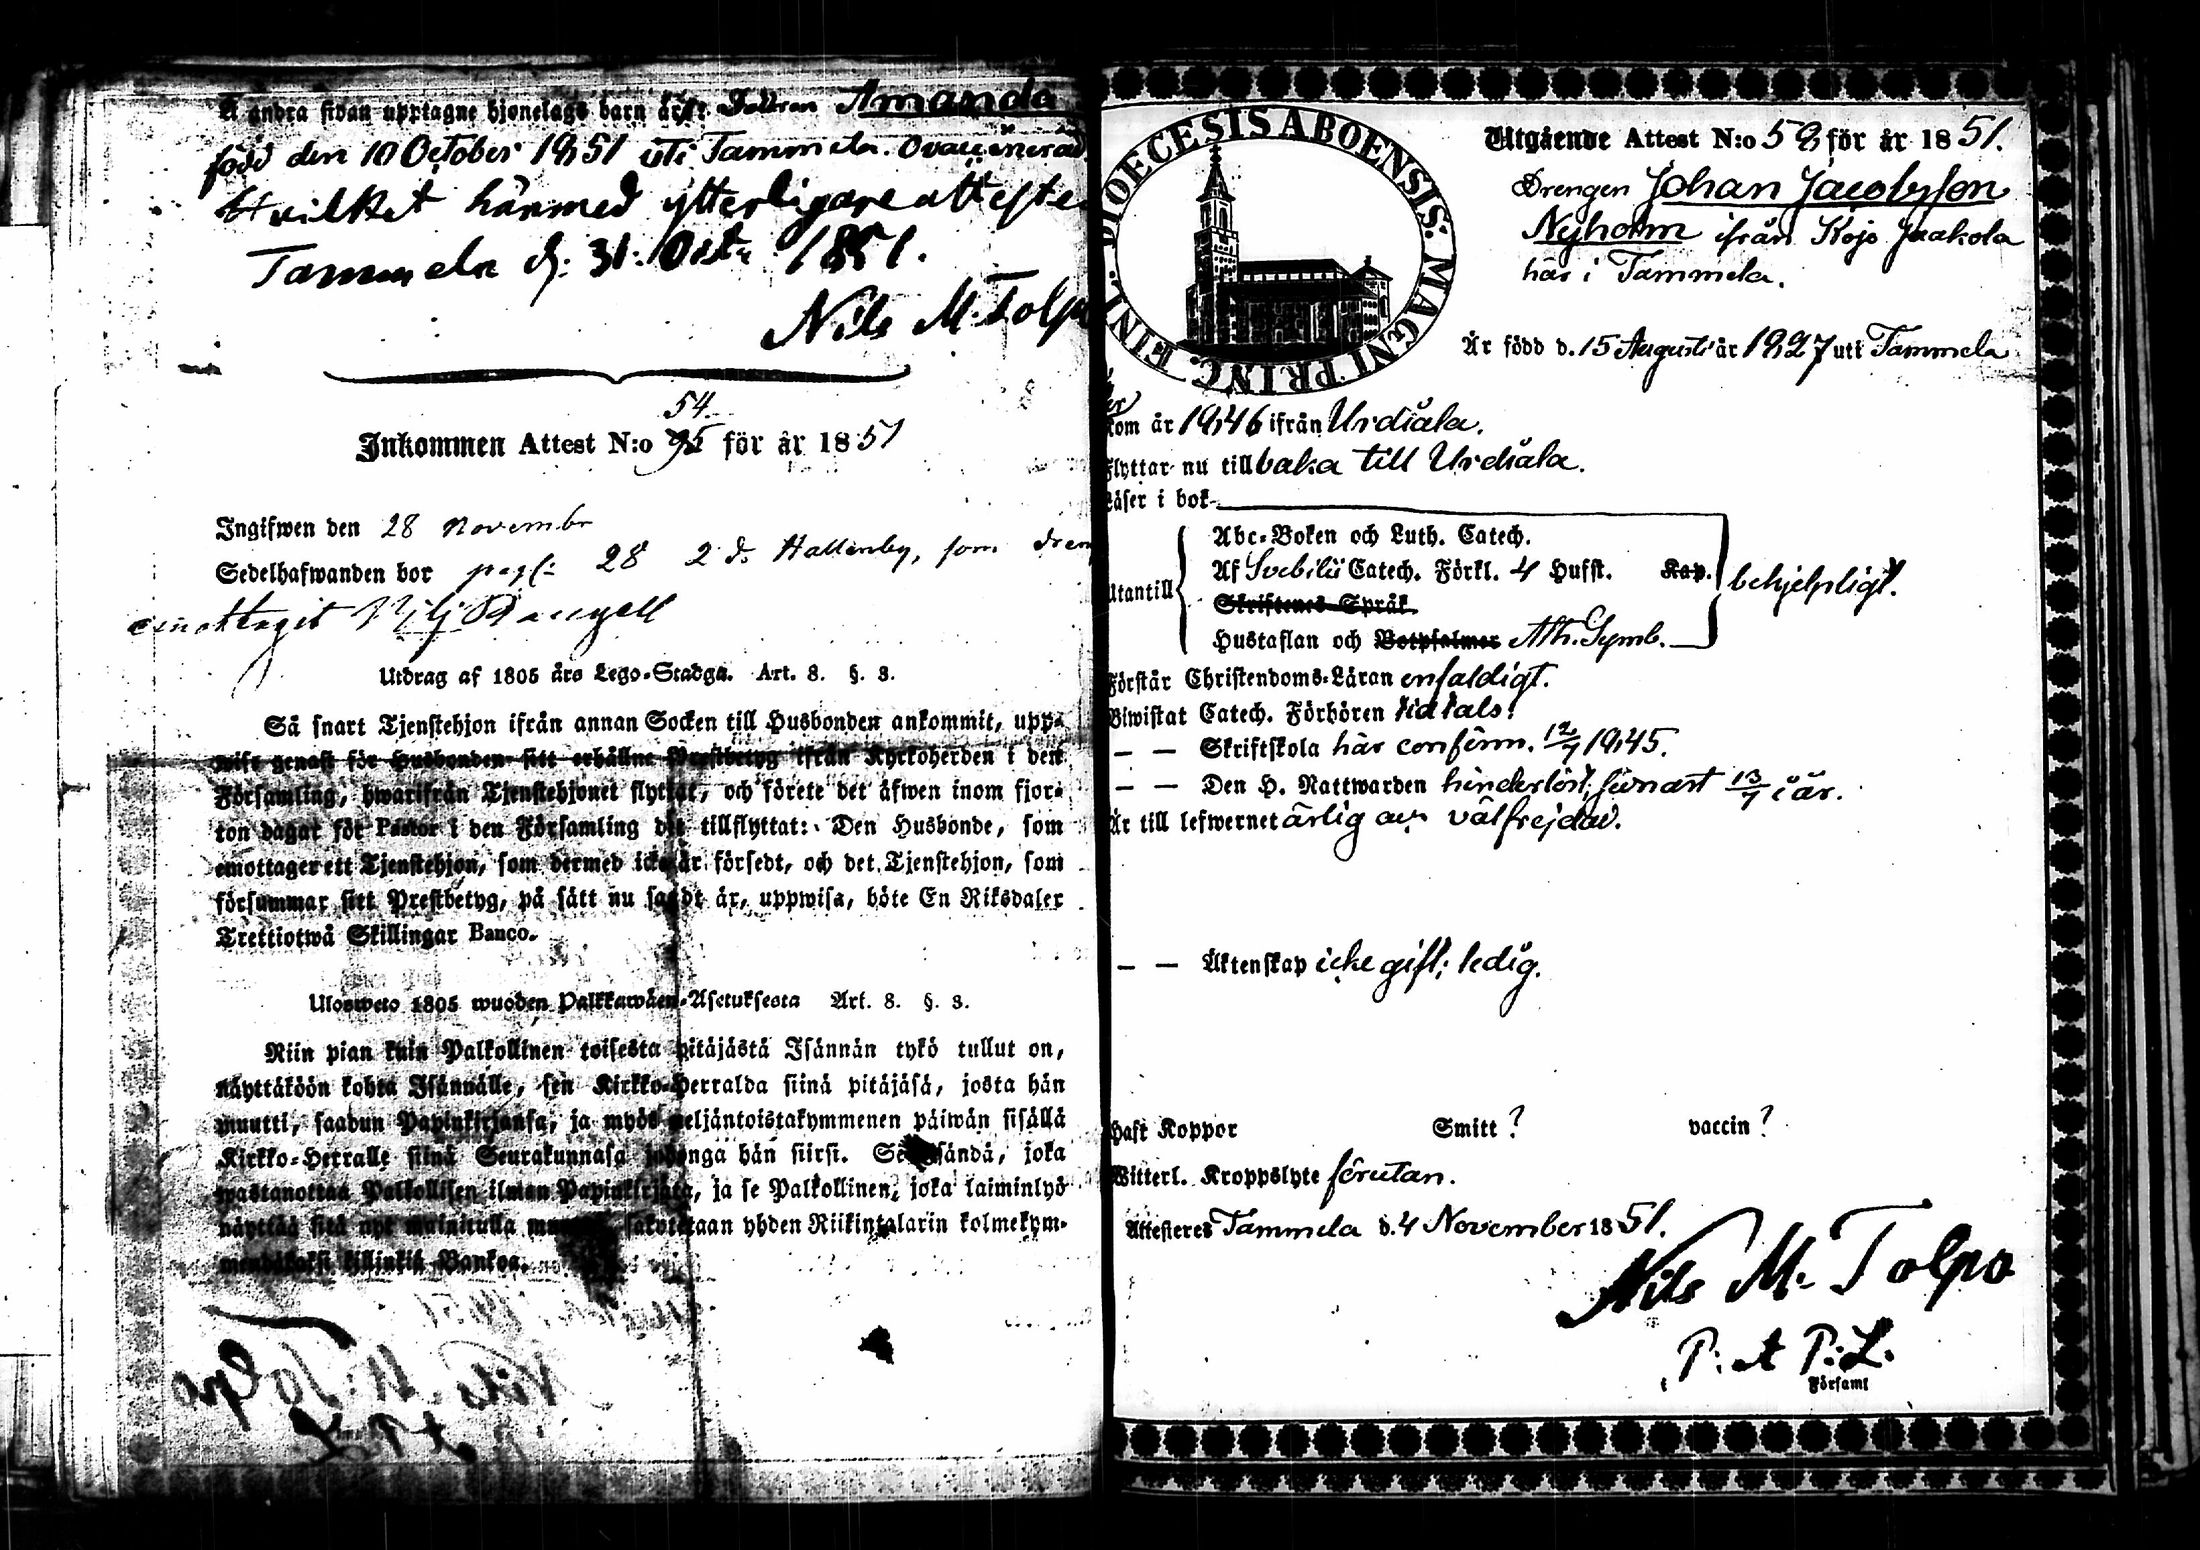 å andra sidan upptagne hjonelags barn är: Dottren Amanda
född den 10 October 1851 uti Tammela. Ovaccinerad
Hvilket härmed ytterligare atteste
Tammela d. 31. Oct. 1851.
Nils M. Tolpo
54.
Inkommen Attest N:o 95 för år 1851
Ingifwen den 28 Novembr
Sedelhafwanden bor pag: 28 2 d. Hallenby, som dren
emottagit Nils
Utdrag af 1805 års Lego-Stadga. Art. 8. §. 3.
Så snart Tjenstehjon ifrån annan Socken till Husbonden ankommit, upp-
wise genast för Husbonden sitt erhållne Prestbetyg ifrån Kyrkoherden i den
Församling, hwarifrån Tjenstehjonet flyttat, och förete det äfwen inom fjor-
ton dagar för Pastor i den Församling det tillflyttat: Den Husbonde, som
emottager ett Tjenstehjon, som dermed icke är försedt, och det Tjenstehjon, som
försummar sitt Prestbetyg, på sätt nu sagdt är, uppwisa, böte En Riksdaler
Trettiotwå Skillingar Banco.
Ulosweto 1805 wuoden Palkkawäen-Asetuksesta Art. 8. §. 3.
Niin pian kuin Palkollinen toisesta pitäjästä Isännän tykö tullut on,
näyttäköön kohta Isännälle, sen Kirkko-Herralda siinä pitäjäsä, josta hän
muutti, saadun Papinkirjansa, ja myös neljäntoistakymmenen päiwän sisällä
Kirkko-Herralle siinä Seurakunnasa johonga hän siirsi. Se Isändä, joka
wastanottaa Palkollisen ilman Papinkirjata, ja se Palkollinen, joka laiminlyö
näyttää sitä nyt mainitulla muotoa, sakotetaan yhden Riikintalarin kolmekym-
mendäkaksi killinkiä Bankoa.
Nils M. Tolpo
P: A P: L
DIOECESIS ABOENSIS. MAGNI PRINC. FINL.
Utgående Attest N:o 58 för år 1851.
Drengen Johan Jacobsson
Nyholm ifrån Kojo Jaakola
här i Tammela.
Är född d. 15 Augusti år 1827 uti Tammela
Kom år 1846 ifrån Urdiala.
Flyttar nu tillbaka till Urdiala.
Läser i bok
Abc-Boken och Luth. Catech.
Af Svebilii Catech. Förkl. 4 Hufst. Kap.
Utantill
behjelpligt.
Skriftenes Språk
Hustaflan och Botpsalmer Ath. Symb.
Förstår Christendoms-Läran enfaldigt.
Biwistat Catech. Förhören tidtals.
— — Skriftskola här confirm. 12/7 1845.
— — Den H. Nattwarden hinderlöst; senast 13/7 i år.
Är till lefwernet ärlig och välfrejdad.
— — Äktenskap icke gift; ledig.
Haft Koppor Smitt? vaccin?
Witterl. Kroppslyte förutan.
Attesteres Tammela d. 4 November 1851.
Nils M. Tolpo
P: A P: L.
Församl